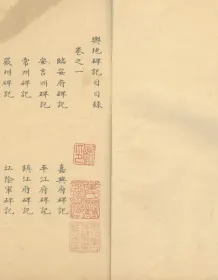 輿地碑記目目錄
卷之一
臨安府碑記
嘉興府碑記
安吉州碑記
平江府碑記
常州碑記
鎮江府碑記
嚴州碑記
江陰軍碑記